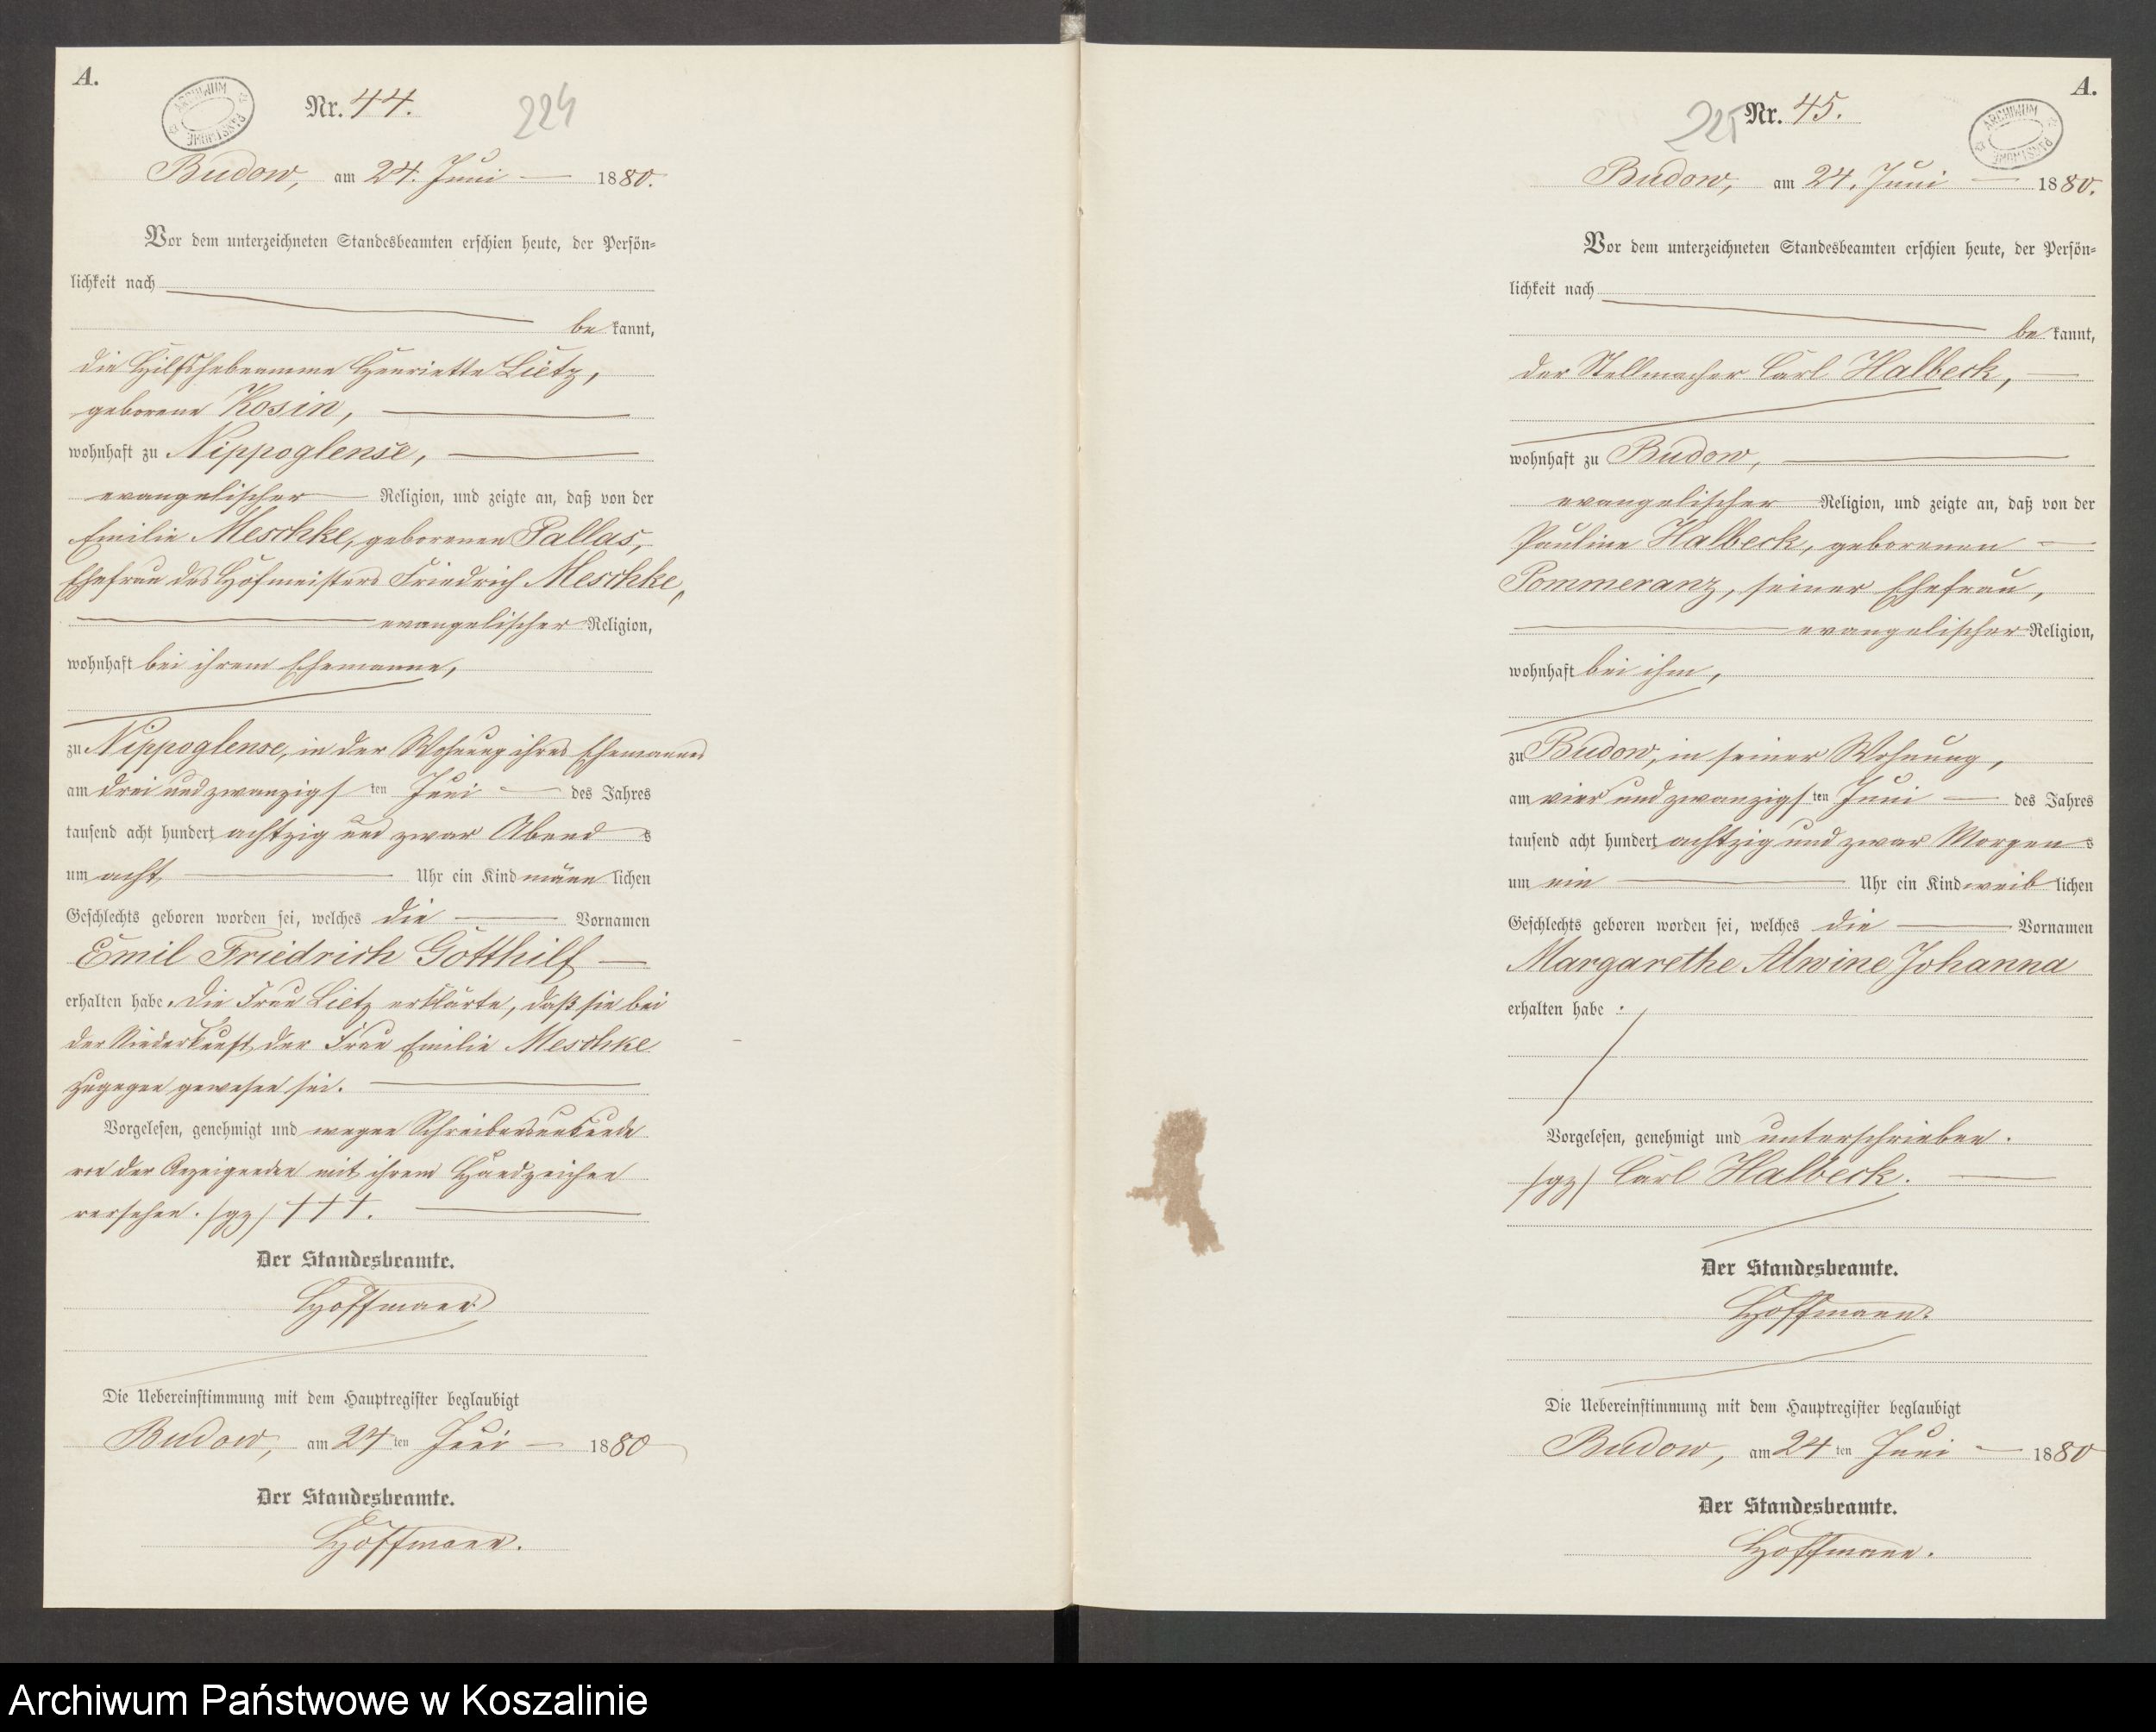 A.
ARCHIWUM PAŃSTWOWE
Nr. 44.
224
Budow, am 24. Juni 1880.
Vor dem unterzeichneten Standesbeamten erschien heute, der Persön=
lichkeit nach
be kannt,
die Hilfshebeamme Henriette Lietz,
geborene Kosin,
wohnhaft zu Nippoglense,
evangelischer Religion, und zeigte an, daß von der
Emilie Meschke, geborenen Pallas,
Ehefrau des Hofmeisters Friedrich Meschke,
evangelischer Religion,
wohnhaft bei ihrem Ehemanne,
zu Nippoglense, in der Wohnung ihres Ehemannes
am drei und zwanzigsten Juni des Jahres
tausend acht hundert achtzig und zwar Abends
um acht Uhr ein Kind männlichen
Geschlechts geboren worden sei, welches die Vornamen
Emil Friedrich Gotthilf
erhalten habe. Die Frau Lietz erklärte, daß sie bei
der Niederkunft der Frau Emilie Meschke
zugegen gewesen sei.
Vorgelesen, genehmigt und wegen Schreibensunkunde
von der Anzeigenden mit ihrem Handzeichen
versehen. (gz) †††.
Der Standesbeamte.
Hoffmann
Die Uebereinstimmung mit dem Hauptregister beglaubigt
Budow, am 24ten Juni 1880
Der Standesbeamte.
Hoffmann.
A.
225
Nr. 45.
ARCHIWUM PAŃSTWOWE
Budow, am 24. Juni 1880.
Vor dem unterzeichneten Standesbeamten erschien heute, der Persön=
lichkeit nach
be kannt,
der Stellmacher Carl Halbeck,
wohnhaft zu Budow,
evangelischer Religion, und zeigte an, daß von der
Pauline Halbeck, geborenen
Pommeranz, seiner Ehefrau,
evangelischer Religion,
wohnhaft bei ihm,
zu Budow, in seiner Wohnung,
am vier und zwanzigsten Juni des Jahres
tausend acht hundert achtzig und zwar Morgens
um ein Uhr ein Kind weiblichen
Geschlechts geboren worden sei, welches die Vornamen
Margarethe Alwine Johanna
erhalten habe.
Vorgelesen, genehmigt und unterschrieben.
(gz) Carl Halbeck.
Der Standesbeamte.
Hoffmann.
Die Uebereinstimmung mit dem Hauptregister beglaubigt
Budow, am 24ten Juni 1880
Der Standesbeamte.
Hoffmann.
Archiwum Państwowe w Koszalinie